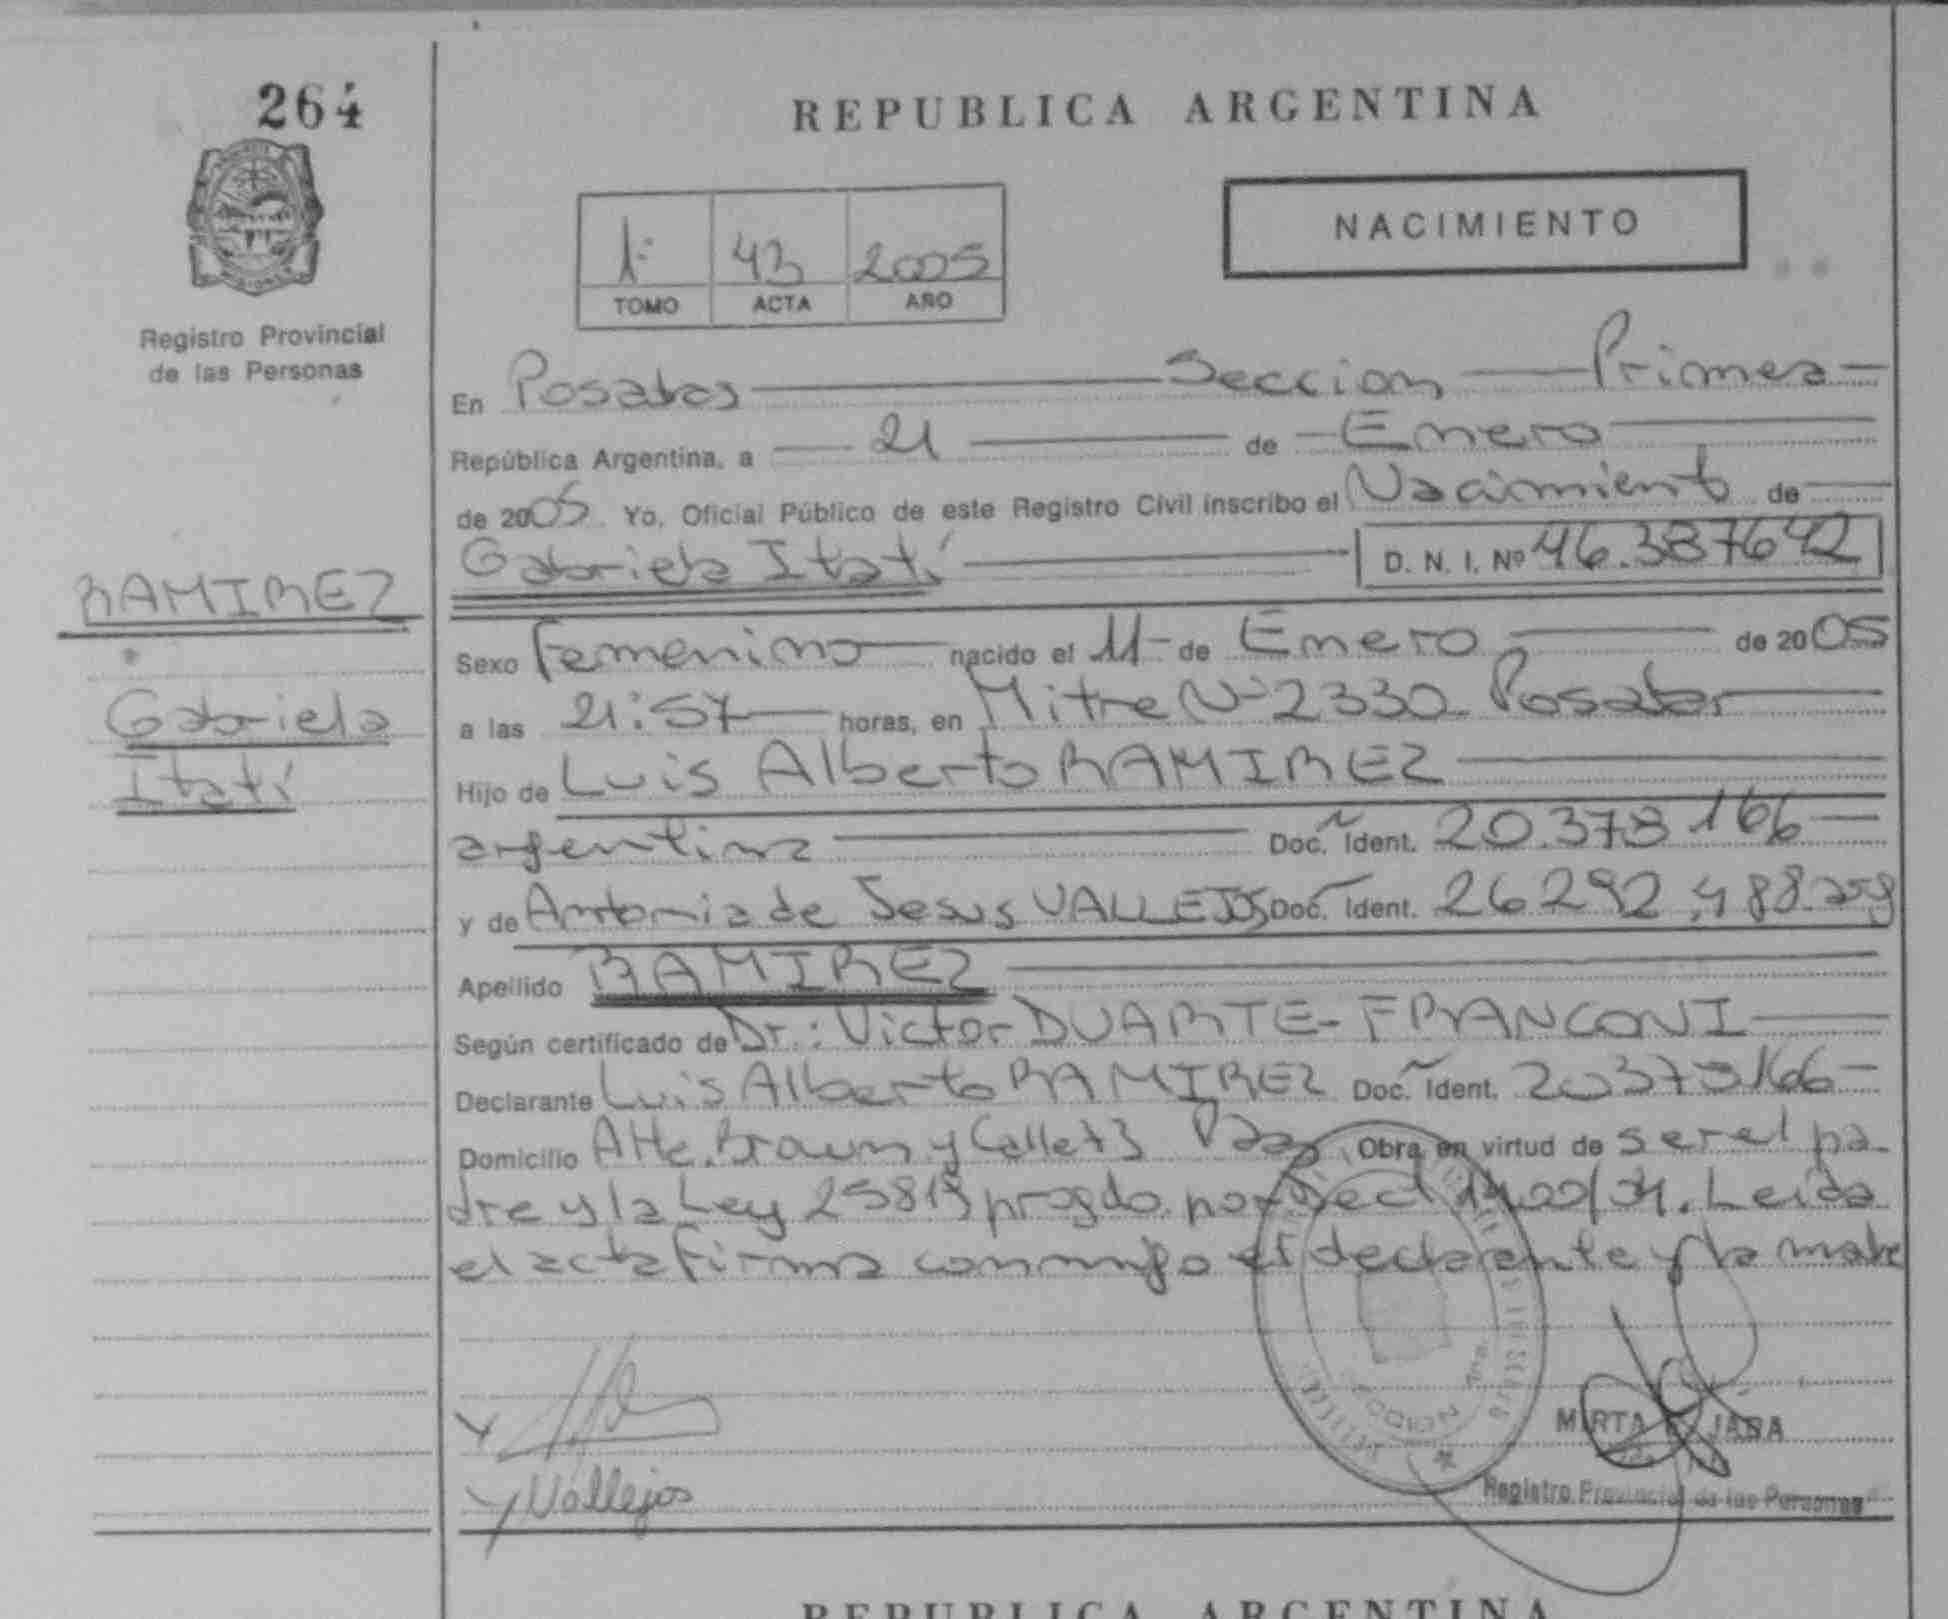 264
Registro Provincial
de las Personas
RAMIREZ
Gabriela
Itatí
REPUBLICA ARGENTINA
1º 43 2005
TOMO ACTA AÑO
NACIMIENTO
En Posadas Seccion Primera
República Argentina, a 21 de Enero
de 2005 Yo, Oficial Público de este Registro Civil inscribo el Nacimiento de
Gabriela Itatí D. N. I. Nº 46.387642
Sexo Femenino nacido el 11 de Enero de 2005
a las 21:57 horas, en Mitre Nº 2330 Posadas
Hijo de Luis Alberto RAMIREZ
argentina Doc. Ident. 20.373 166
y de Antonia de Jesus VALLEJOS Doc. Ident. 26292.488 arg
Apellido RAMIREZ
Según certificado de Dr.: Victor DUARTE-FRANCONI
Declarante Luis Alberto RAMIREZ Doc. Ident. 20373166
Domicilio Alte. Brown y Calle 13 Obra en virtud de ser el pa-
dre y la Ley 25819 progdo. por Dec /04. Leida
el acta firma conmigo el declarante y la madre
Vallejos
MIRTA JARA
Registro Provincial de las Personas
REPUBLICA ARGENTINA